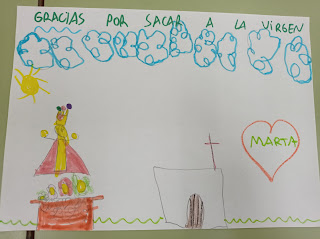 GRACIAS POR SACAR A LA VIRGEN
MARTA